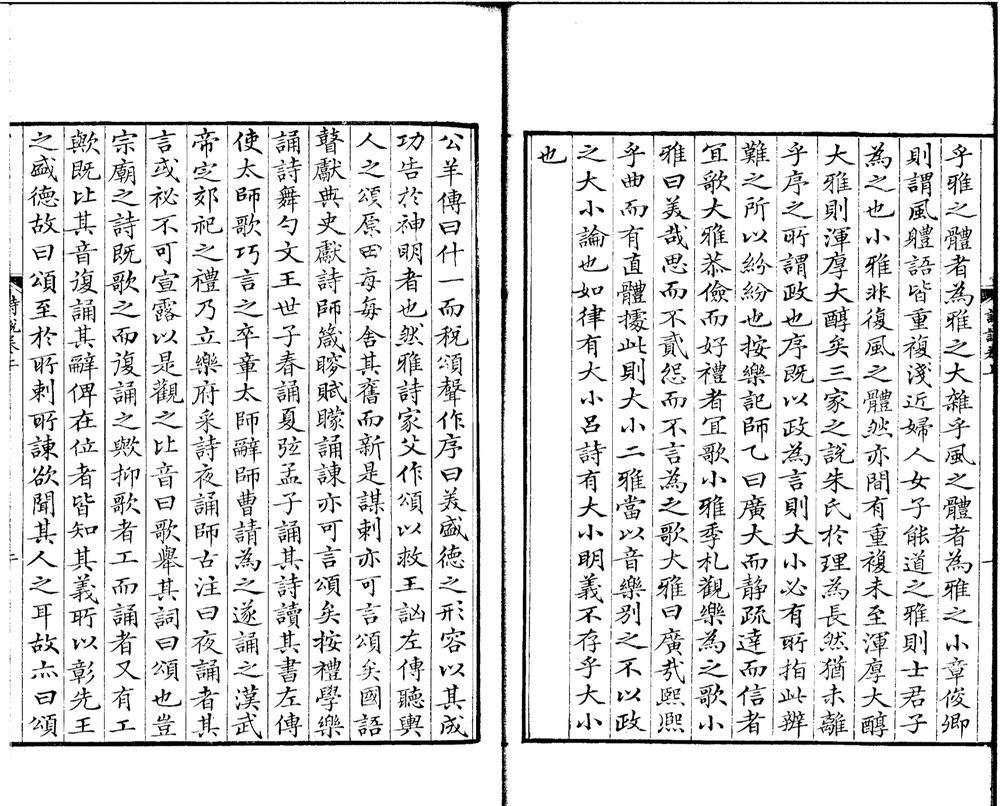 乎雅之體者為雅之大雜乎風之體者為雅之小章俊卿
則謂風軆語皆重複淺近婦人女子能道之雅則士君子
為之也小雅非復風之體然亦間有重複未至渾厚大醇
大雅則渾厚大醇矣三家之說朱氏於理為長然猶未離
乎序之所謂政也序既以政為言則大小必有所指此辨
難之所以紛紛也按樂記師乙曰廣大而静疏達而信者
宜歌大雅恭儉而好禮者宜歌小雅季札觀樂為之歌小
雅曰美哉思而不貳怨而不言為之歌大雅曰廣哉熙熙
乎曲而有直體據此則大小二雅當以音樂别之不以政
之大小論也如律有大小呂詩有大小明義不存乎大小
也
公羊傳曰什一而稅頌聲作序曰美盛德之形容以其成
功告於神明者也然雅詩家父作頌以救王訩左傳聽輿
人之頌原田每每舍其舊而新是謀刺亦可言頌矣國語
瞽獻典史獻詩師箴瞍賦矇誦諫亦可言頌矣按禮學樂
誦詩舞勺文王世子春誦夏弦孟子誦其詩讀其書左傳
使太師歌巧言之卒章太師辭師曹請為之遂誦之漢武
帝定郊祀之禮乃立樂府采詩夜誦師古注曰夜誦者其
言或祕不可宣露以是觀之比音曰歌舉其詞曰頌也豈
宗廟之詩既歌之而復誦之歟抑歌者工而誦者又有工
歟既比其音復誦其辭俾在位者皆知其義所以彰先王
之盛德故曰頌至於所刺所諫欲聞其人之耳故亦曰頌